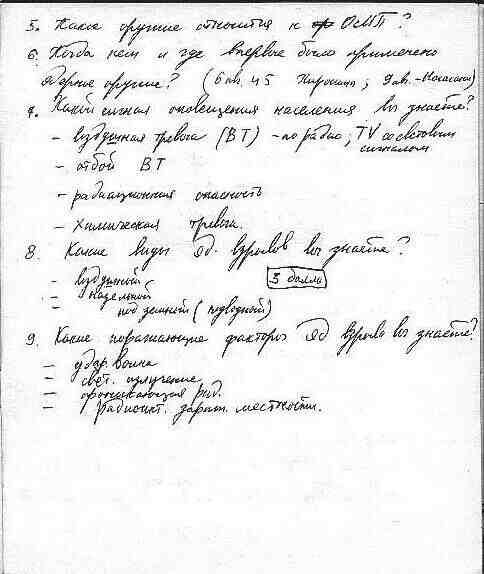 5. Какое оружие относится к ОМП?
6. Когда кем и где впервые было применено
ядерное оружие? (6 ав. 45 Хиросима; 9 ав. - Нагасаки)
7. Какие сигналы оповещения населения вы знаете?
- воздушная тревога (ВТ) - по радио, TV со световым
сигналом
- отбой ВТ
- радиационная опасность
- химическая тревога.
8. Какие виды яд. взрывов вы знаете?
- воздушной
3 балла
- наземной
- подземной (подводной)
9. Какие поражающие факторы яд взрыва вы знаете?
- удар. волна
- свет. излучение
- проникающая рад.
- радиоакт. зараж. местности.